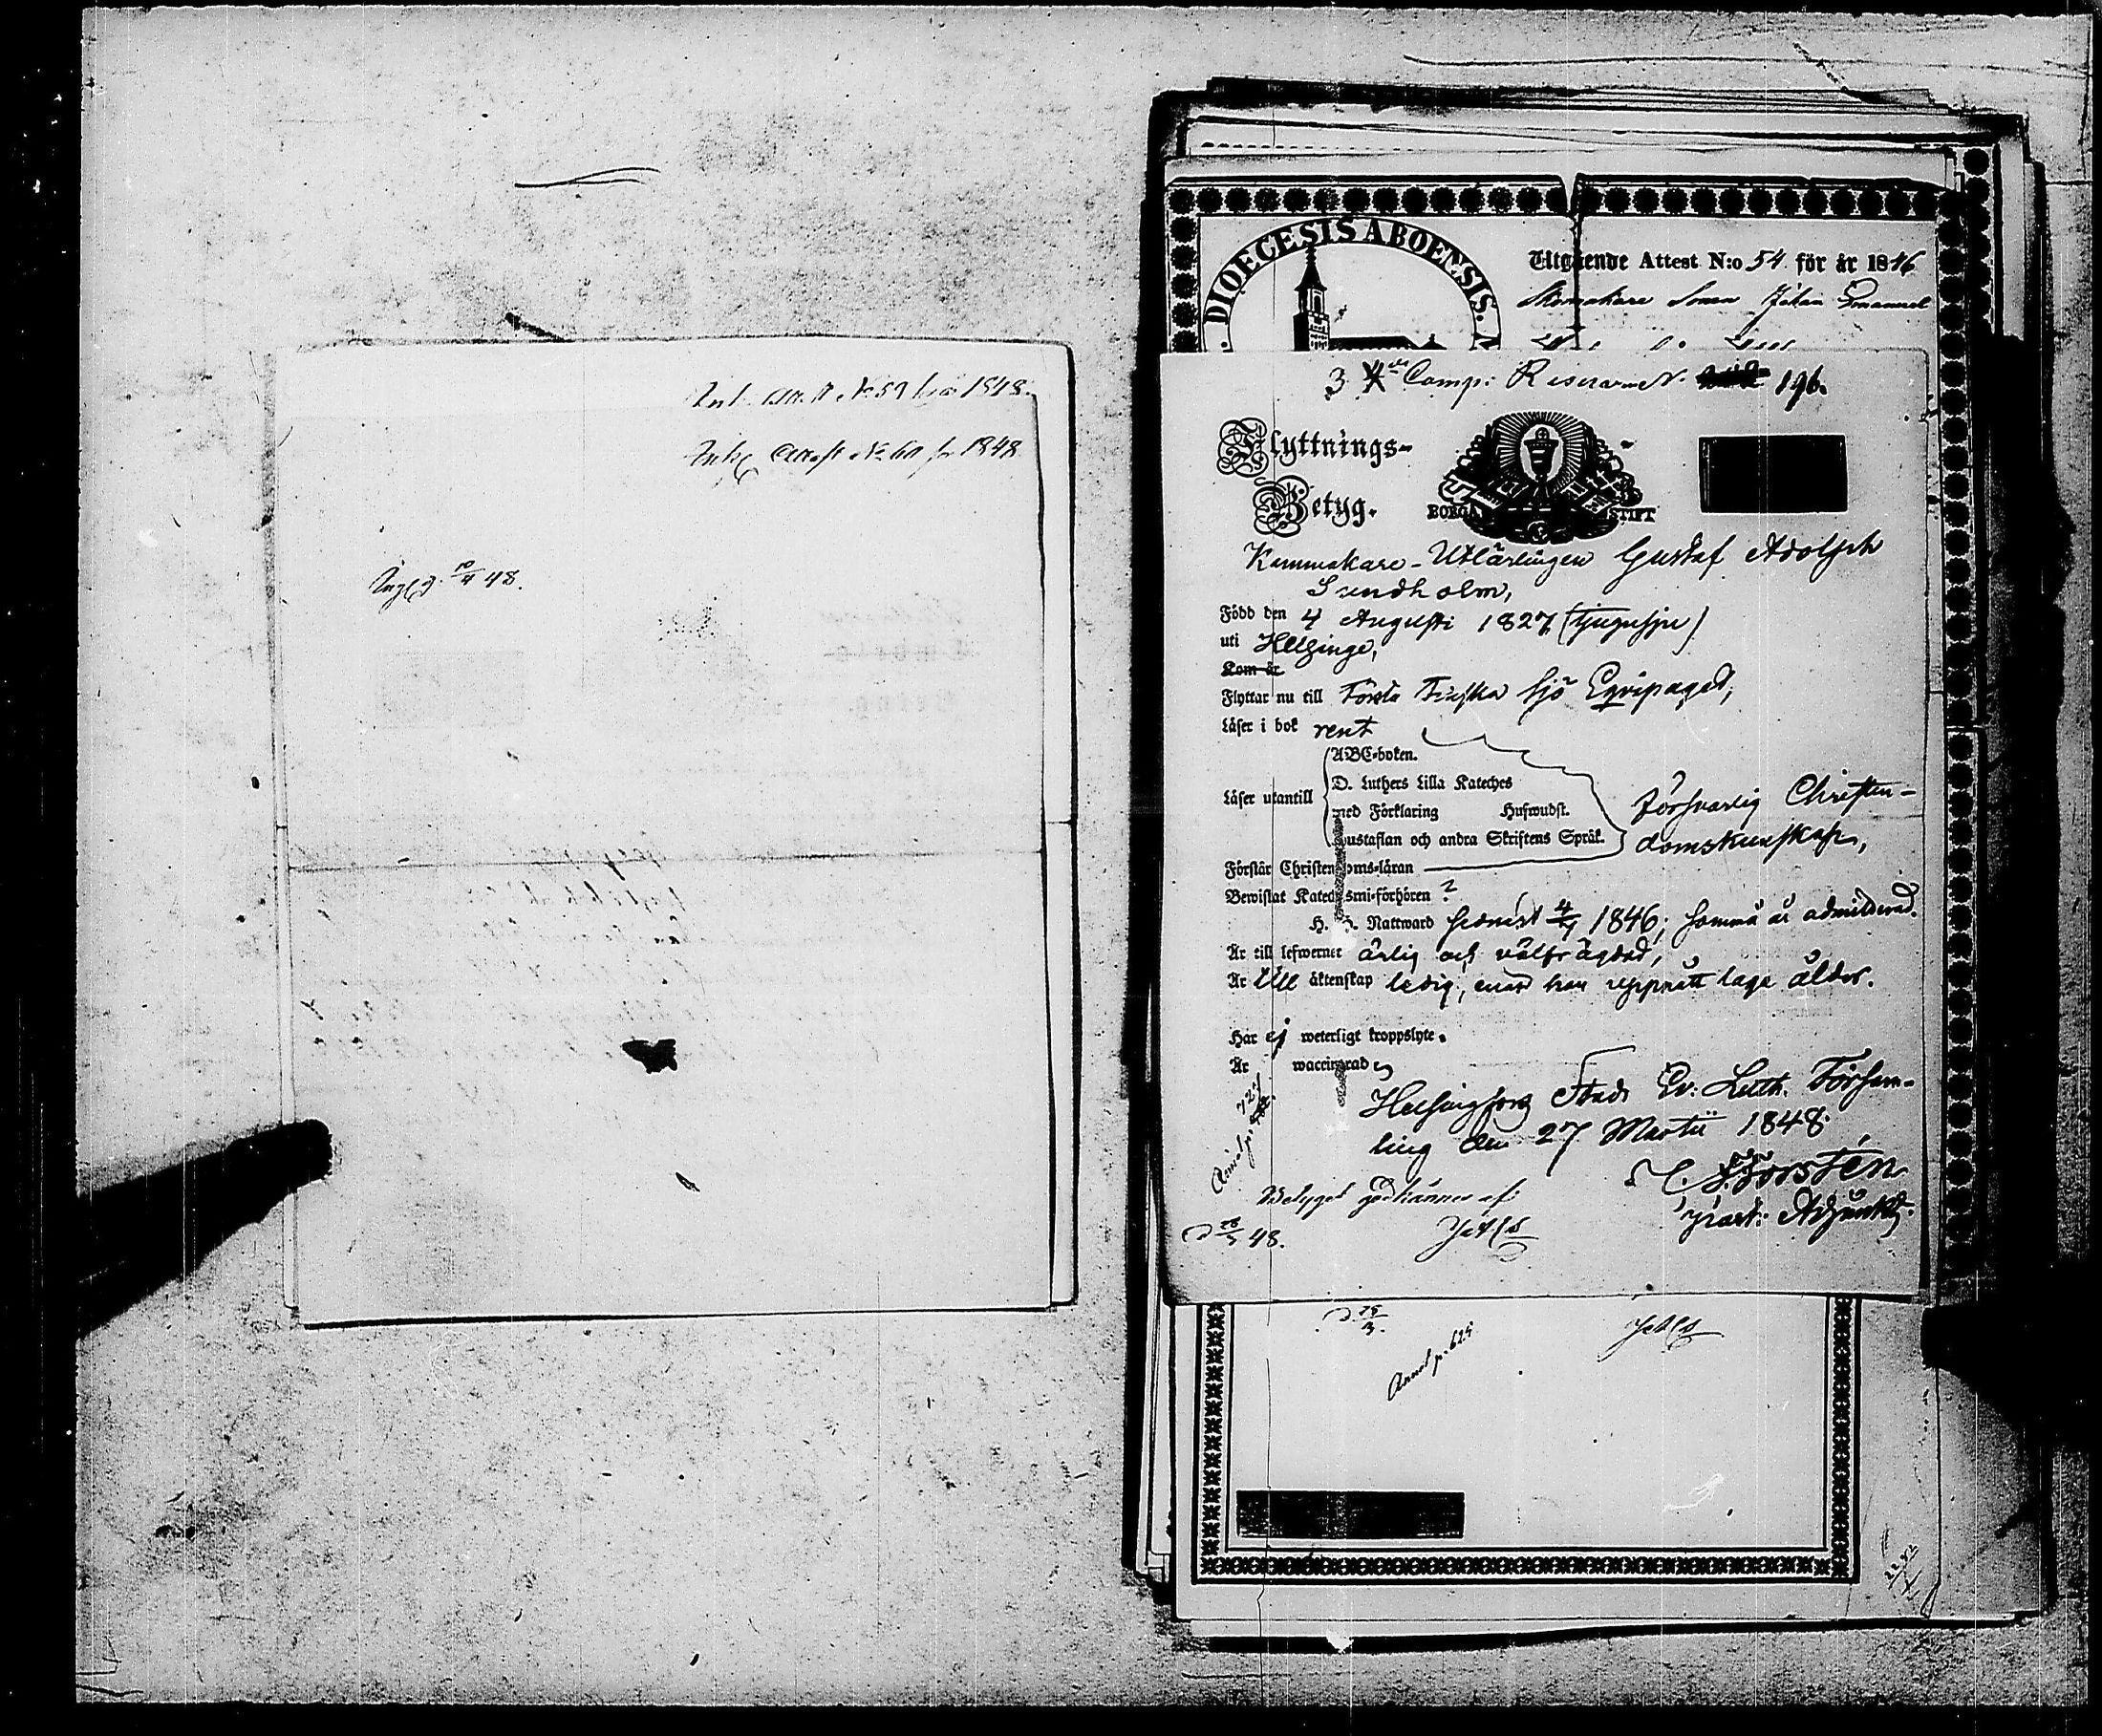 Att. No 59 för 1848.
Ink. Attest No 60 för 1848
48.
DIOECESIS ABOENSIS.
Utgående Attest N:o 54 för år 1846
Skomakare Sonen Johan Emanuel
3 Comp: Reserven N. 196.
Flyttnings-
Betyg.
BORGÅ STIFT
Kammakare-Utlärlingen Gustaf Adolph
Sundholm,
Född den 4 Augusti 1827 (tjugusju)
uti Helsinge,
Kom år
Flyttar nu till Första Finska Sjö Eqvipaget,
Läser i bok rent
ABC-boken.
D. Luthers Lilla Kateches
Läser utantill
med Förklaring Hufwudst.
Hustaflan och andra Skriftens Språk.
Försvarlig Christen-
domskunskap,
Förstår Christendoms-läran
Bewistat Katechismi-förhören ?
H. H. Nattward senast 1846; hwartill är admitterad.
Är till lefwernet ärlig och välfrägdad,
Är till äktenskap ledig, enär han uppnått laga ålder.
Har ej weterligt kroppslyte.
Är waccinerad
Helsingfors Stads Ev: Luth. Församling
den 27 Martii 1848.
Forstén
Adjunkt.
Annot. p. 727
Betyget godkännes af:
48.
Annot p. 625